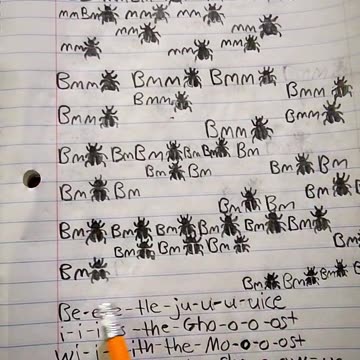 mmBm mm mm
mm mm
mm mm
Bmm Bmm Bmm
Bmm Bmm
Bmm Bmm
Bmm
Bm BmBm Bm Bm Bm
Bm Bm Bm Bm
Bm Bm
Bm Bm
Bm Bm Bm Bm Bm
Bm Bm Bm
Bm
Bm Bm Bm
-tle-ju-u-u-uice
-the-Gho-o-o-ost
-the-Mo-o-o-ost